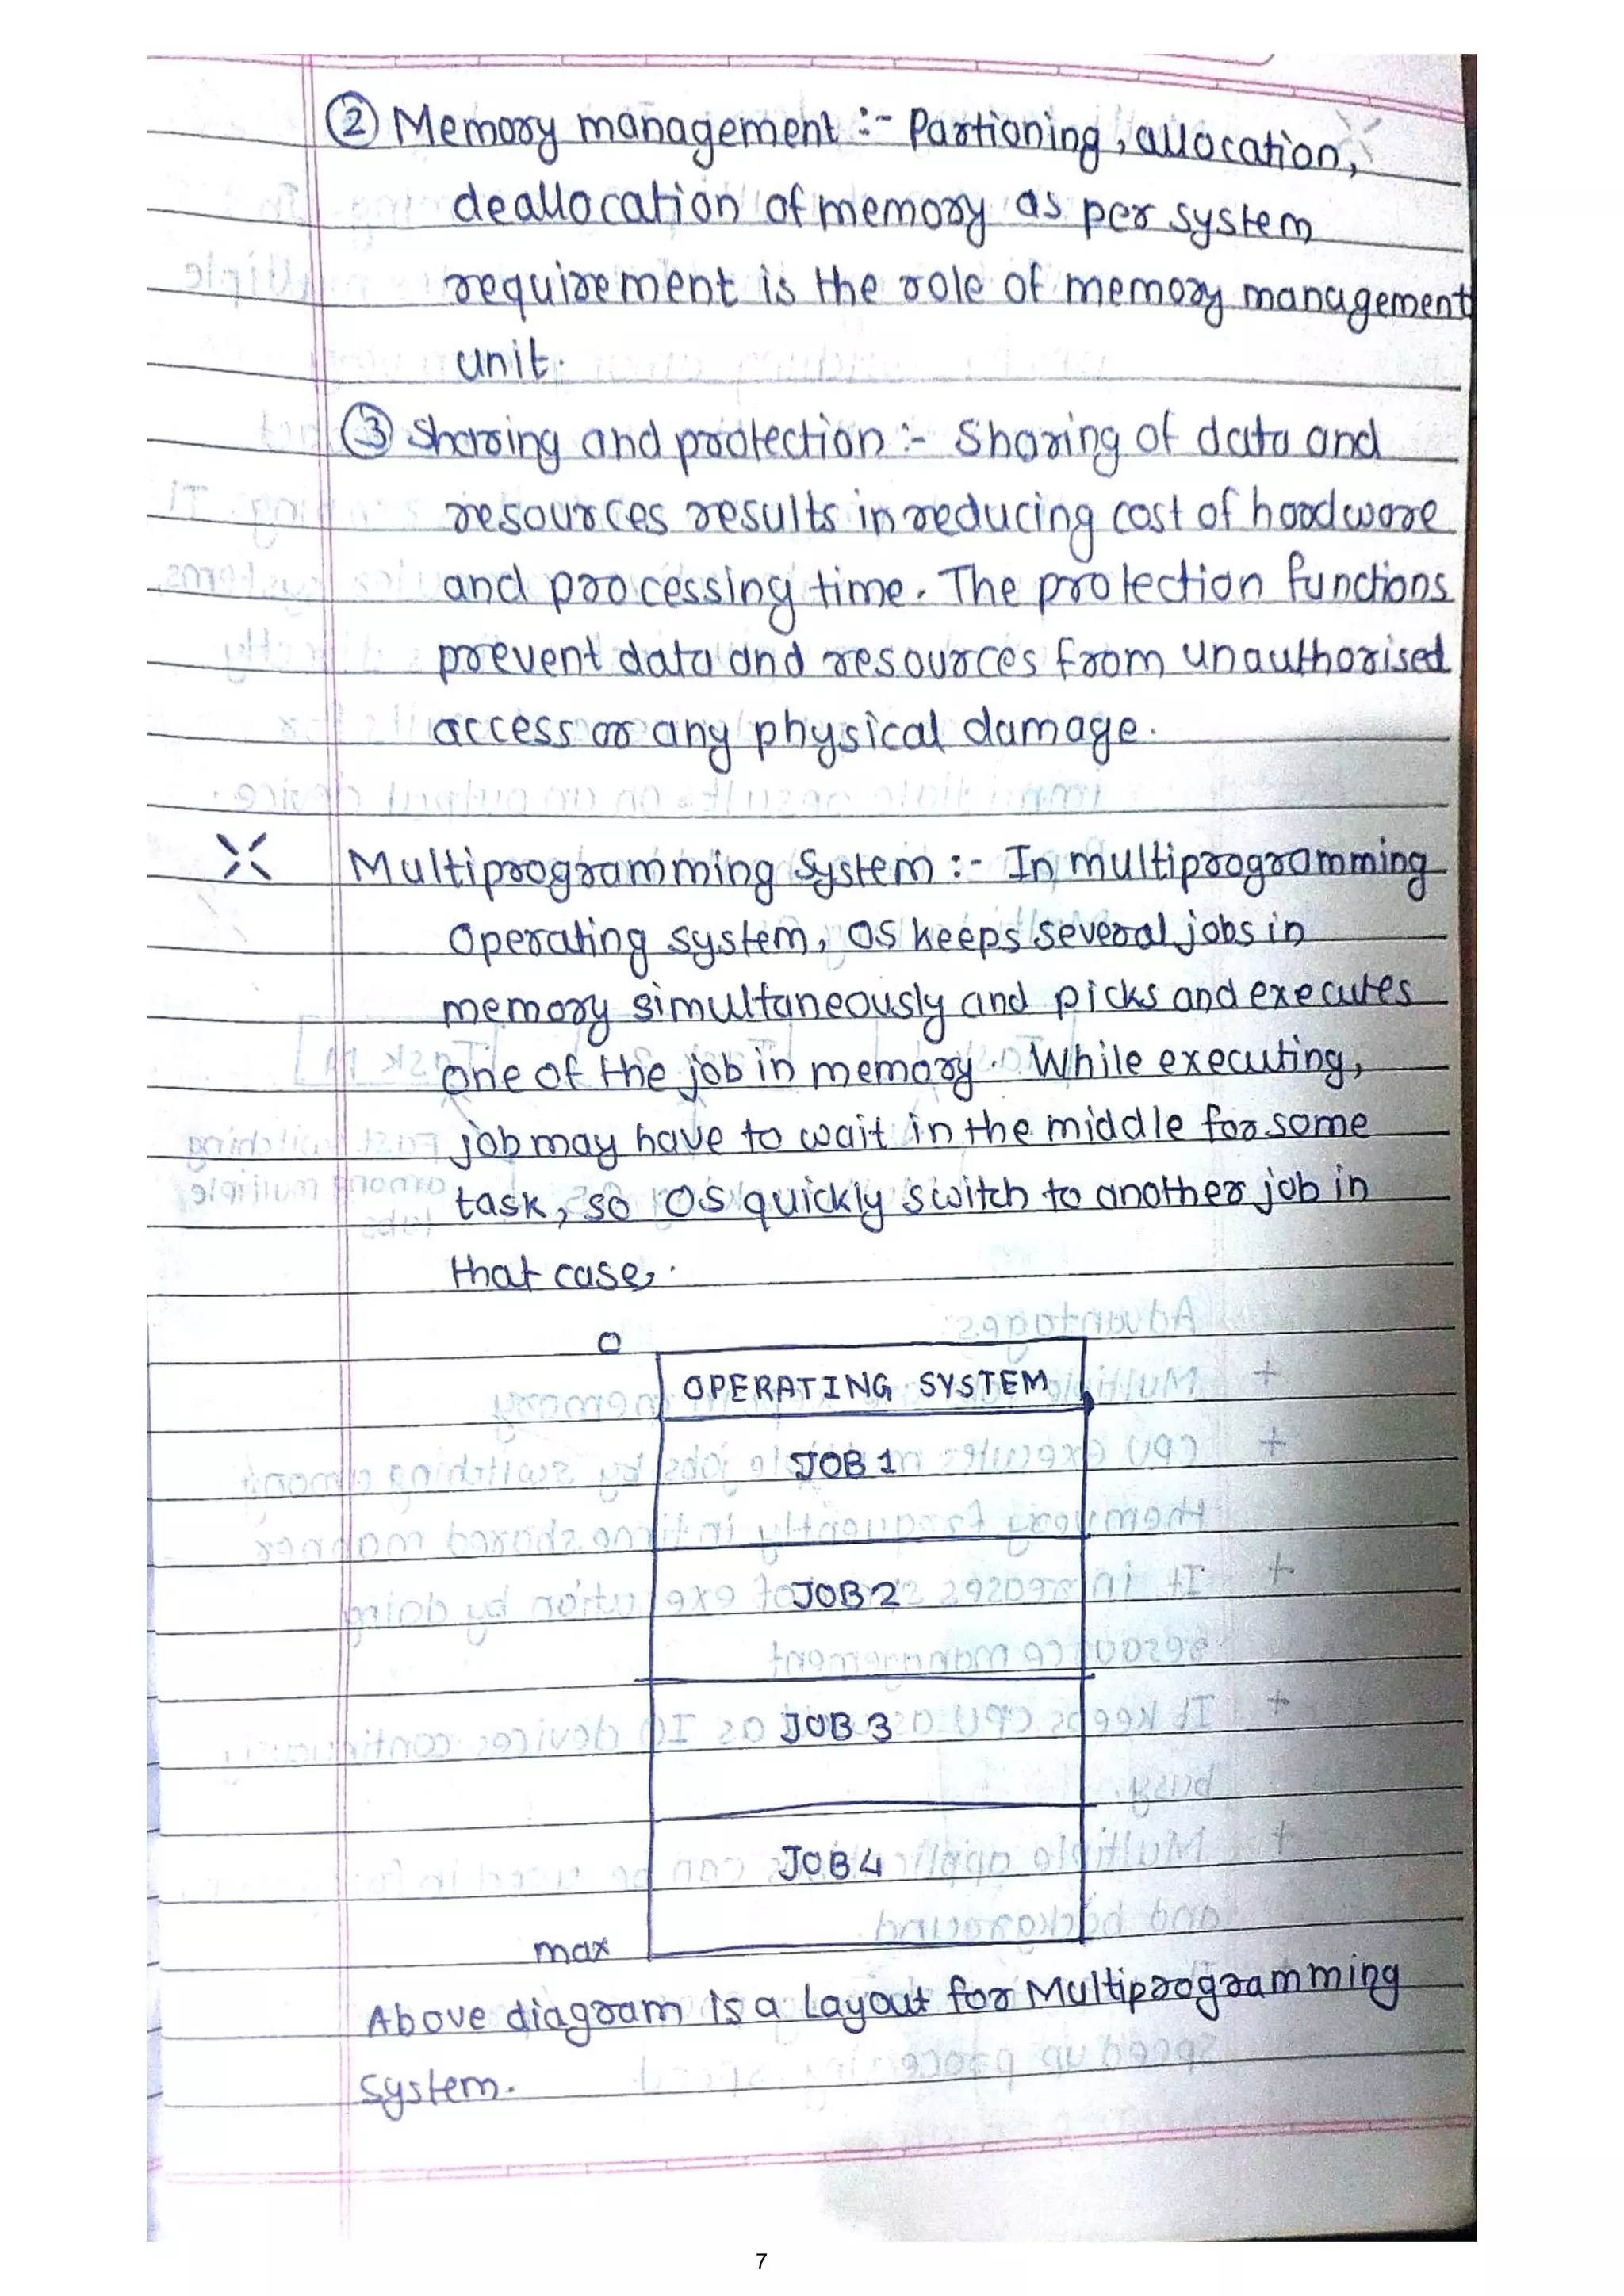 ② Memory management :- Partioning, allocation,
deallocation of memory as per system
requirement is the role of memory management
unit.
③ Sharing and protection :- Sharing of data and
resources results in reducing cost of hardware
and processing time. The protection functions
prevent data and resources from unauthorised
access or any physical damage.
Multiprogramming System :- In multiprogramming
Operating system, OS keeps several jobs in
memory simultaneously and picks and executes
one of the job in memory. While executing,
job may have to wait in the middle for some
task, so OS quickly switch to another job in
that case.
0
OPERATING SYSTEM
JOB 1
JOB 2
JOB 3
JOB 4
max
Above diagram is a Layout for Multiprogramming
System.
7